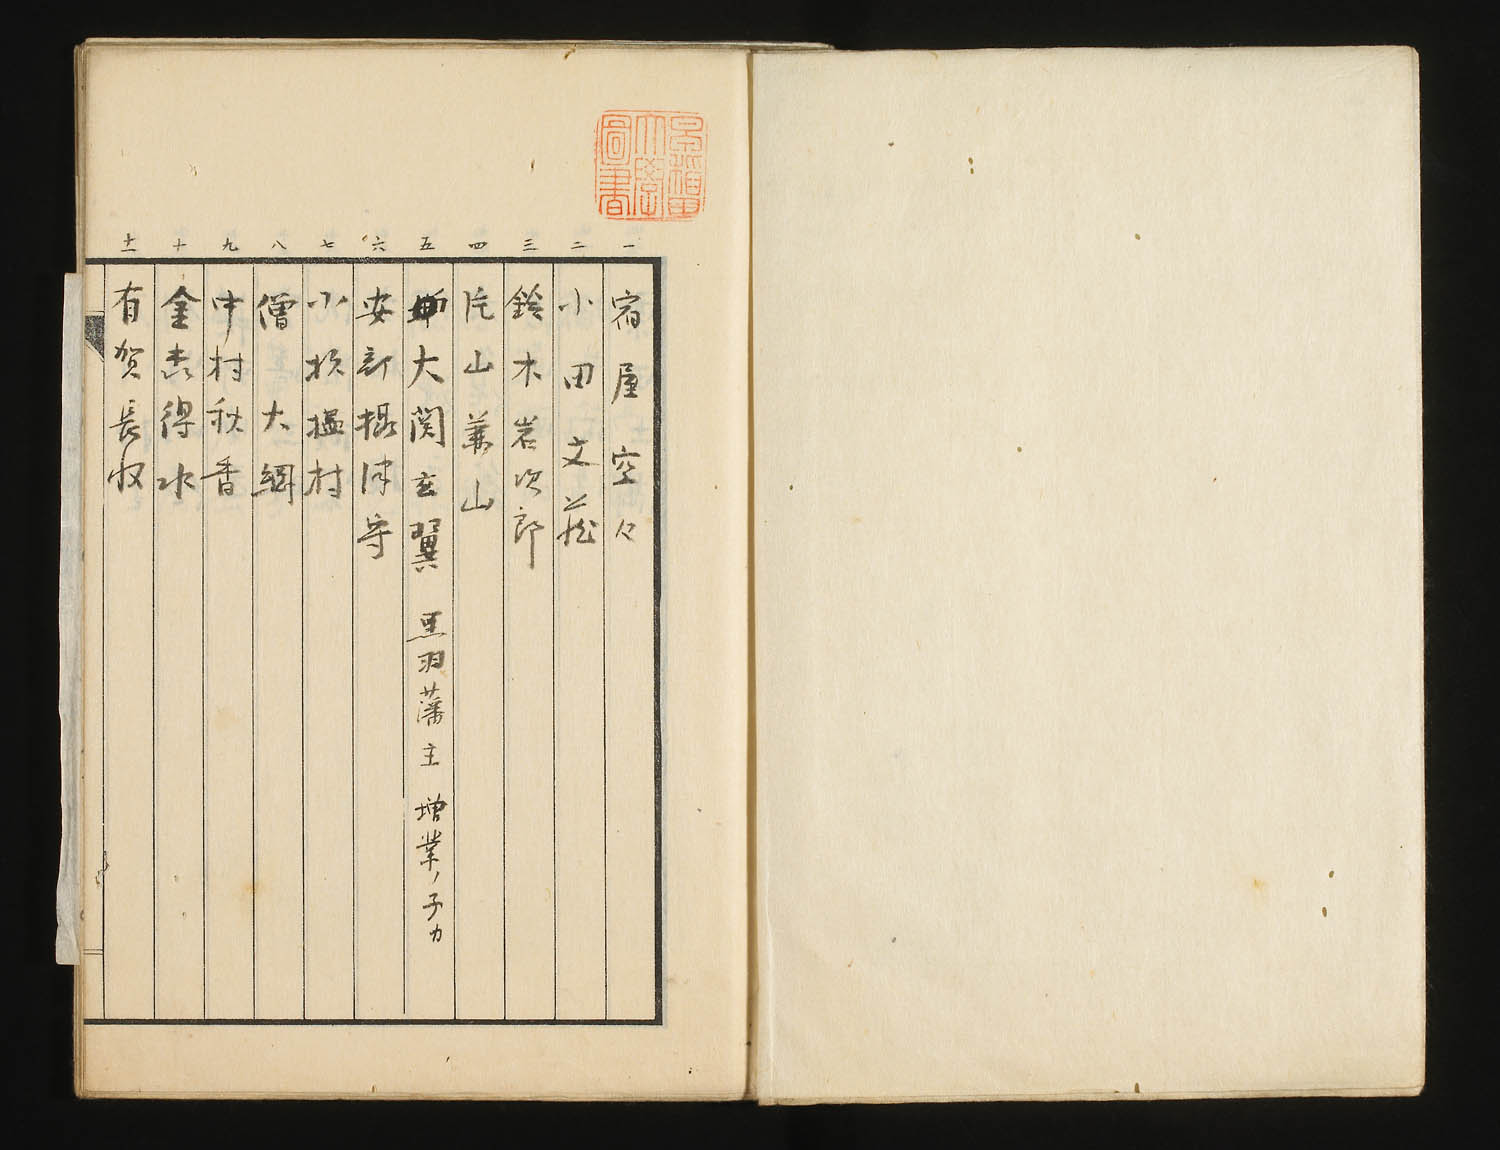 早稲田大學圖書
一 宿屋空々
二 小田文庵
三 鈴木岩次郎
四 片山兼山
五 大関玄翼 黒羽藩主 増業ノ子カ
六 安部摂津守
七 小杉榲村
八 僧大綱
九 中村秋香
十 金森得水
十一 有賀長収